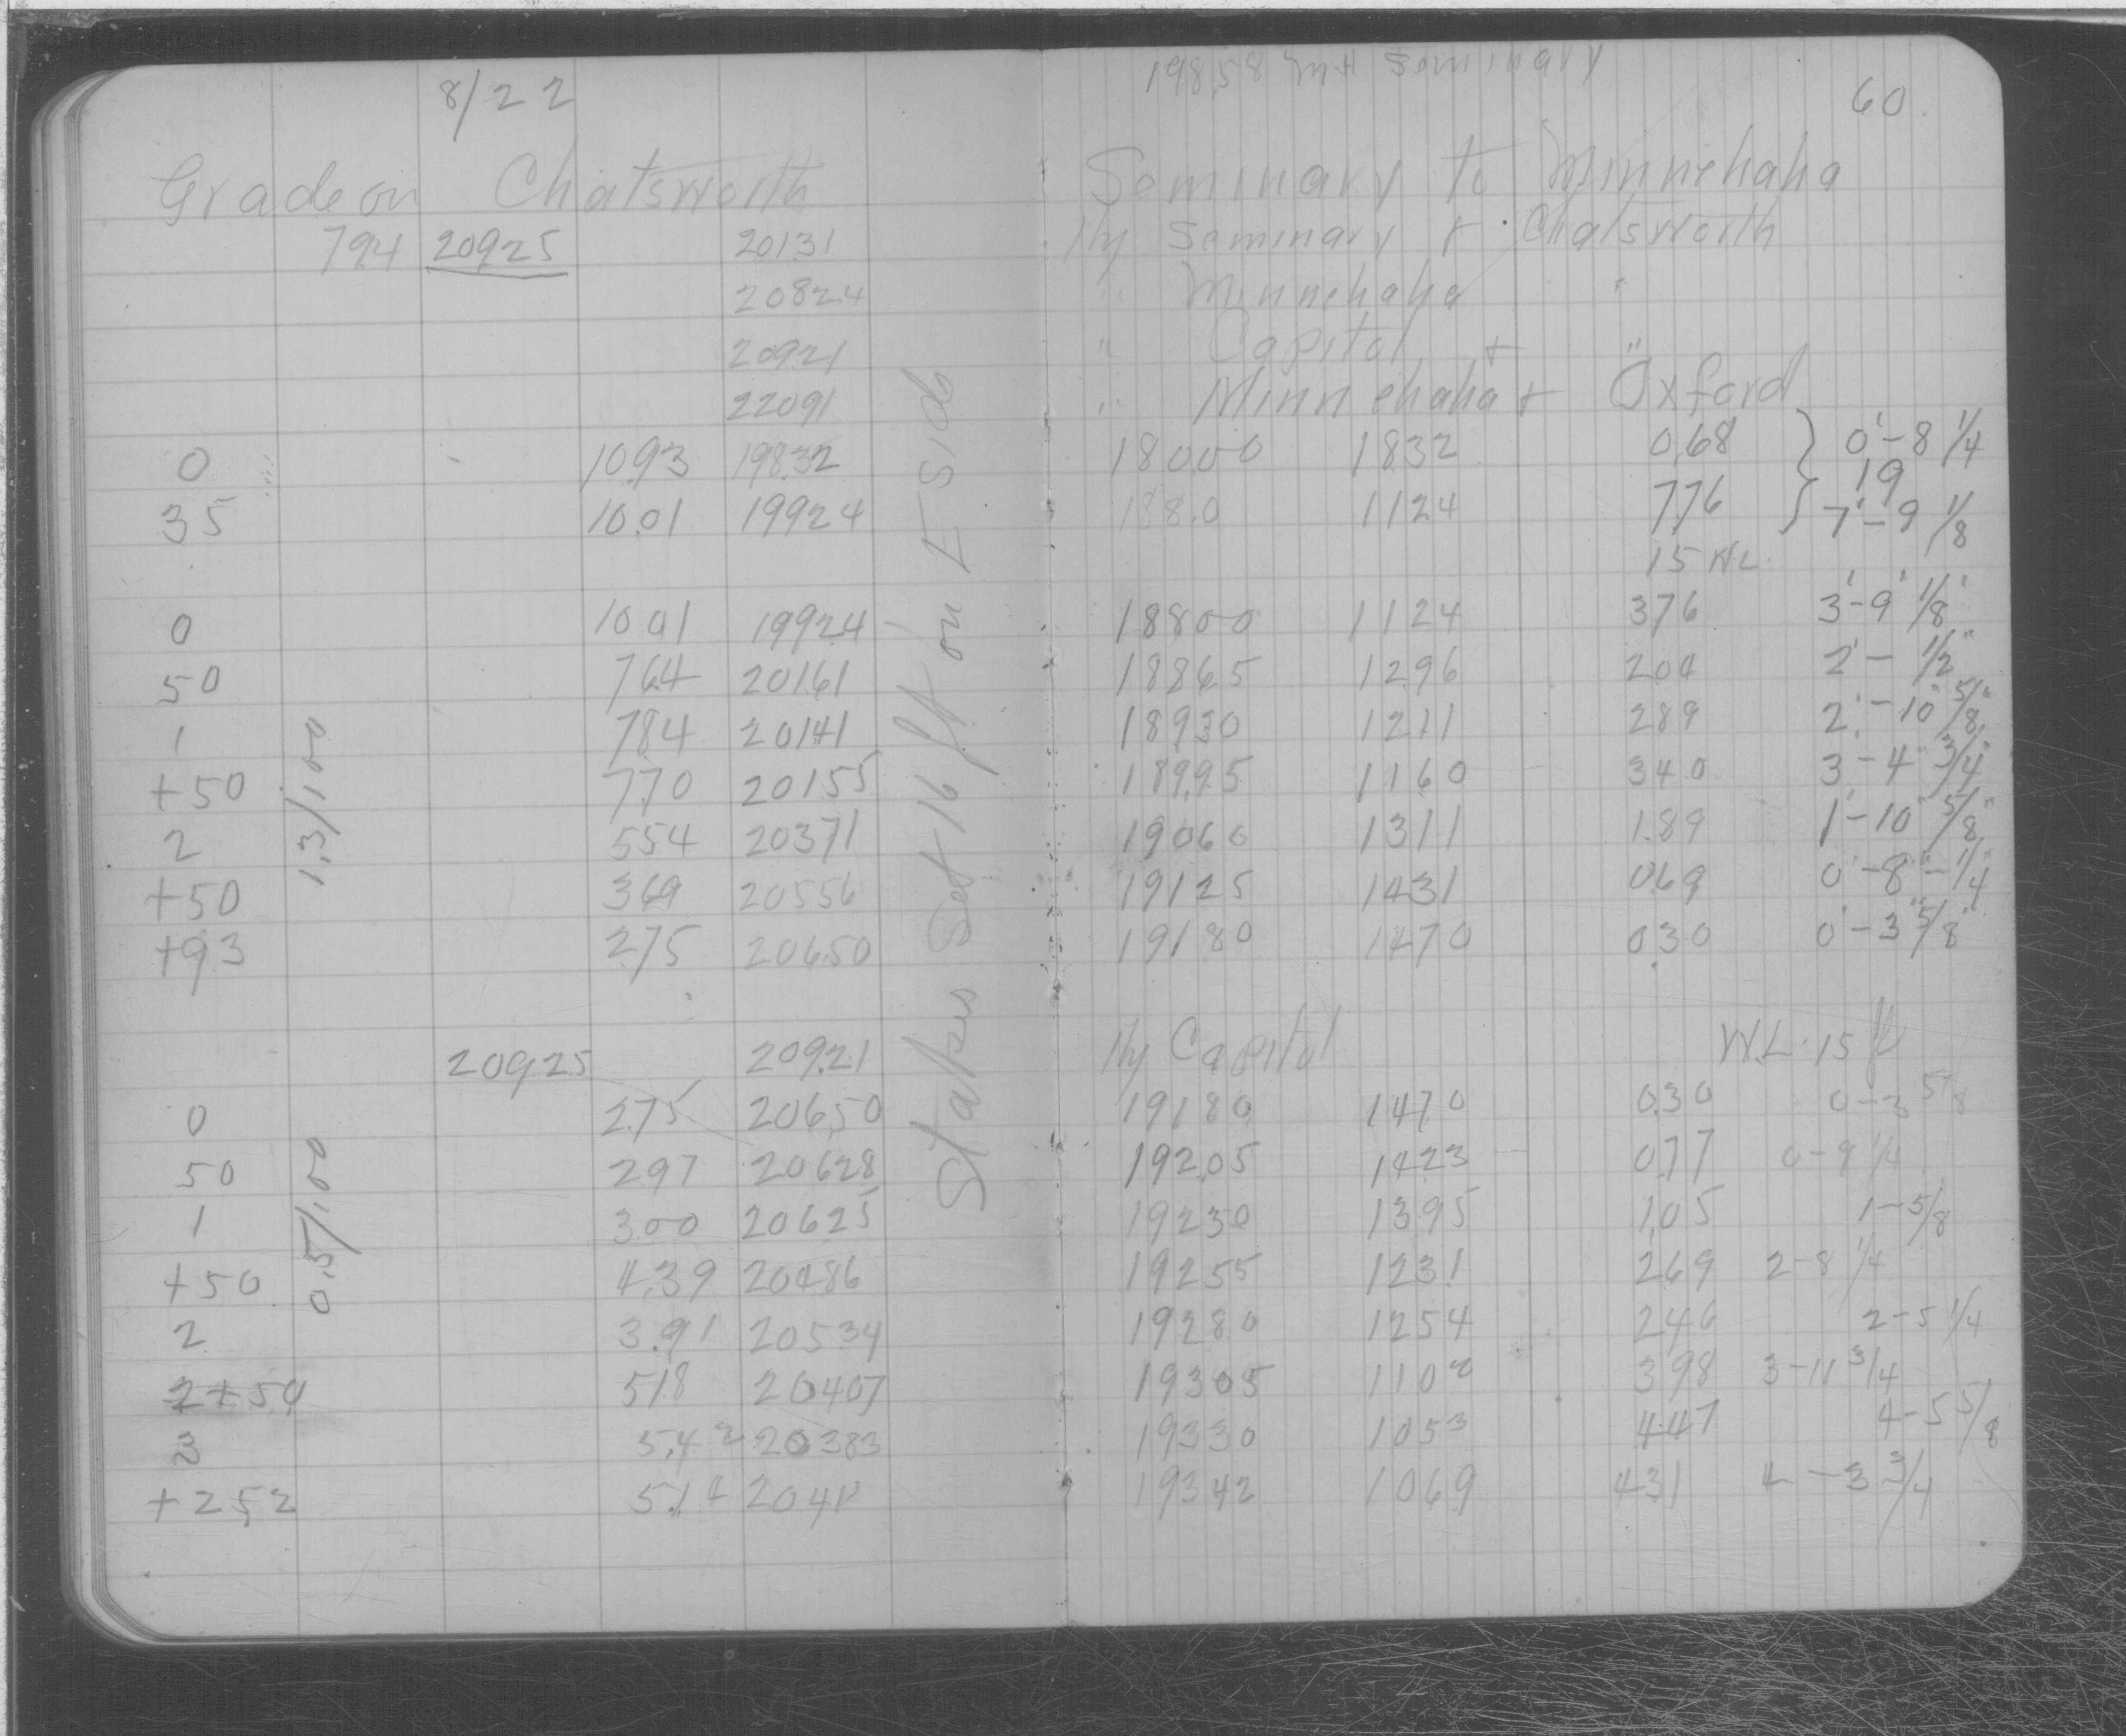 8/22
19858 Int Seminary
60
Grade on Chatsworth Seminary to Minnehaha
794 20925 20131 Hy Seminary + Chatsworth
20824 " Minnehaha "
20921 " Capitol + "
22091 " Minnehaha + Oxford
0 1093 19832 18000 1832 0.68 0'-8 1/4
19
35 10.01 19924 188.0 1124 776 7'-9 1/8
15 W.L.
0 1001 19924 18800 1124 376 3'-9" 1/8"
50 764 20161 18865 1296 204 2'- 1/2"
1 784 20141 18930 1211 289 2'-10" 5/8"
+50 770 20155 18995 1160 340 3'-4" 3/4"
2 554 20371 19060 1311 1.89 1'-10" 5/8"
+50 369 20556 19125 1431 069 0'-8"-1/4"
+93 275 20650 19180 1470 030 0'-3" 5/8"
1.3/100
Stakes Set 16 ft on E side
20925 20921 Hy Capitol W.L. 15 ft
0 275 20650 19180 1470 030 0-3 5/8
50 297 20628 19205 1423 077 0-9 1/4
1 300 20625 19230 1395 1.05 1-5/8
+50 4.39 20486 19255 1231 269 2-8 1/4
2 3.91 20534 19280 1254 246 2-5 1/4
2+50 518 20407 19305 1102 398 3-11 3/4
3 5.42 20383 19330 1053 447 4-5 5/8
+252 5.14 2041 19342 1069 431 4-3 3/4
0.5/100